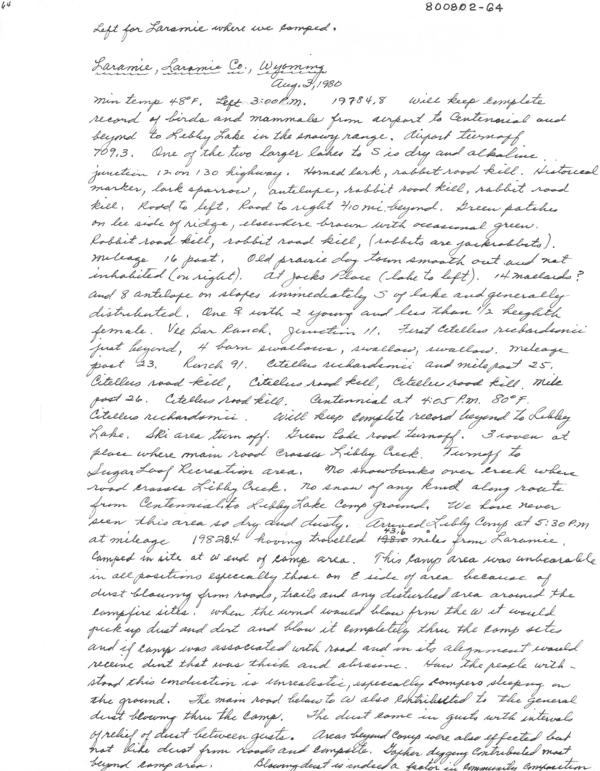 64
800802-64
Left for Laramie where we camped.
Laramie, Laramie Co., Wyoming
Aug. 3, 1980
Min temp 48°F. Left 3:00 P.M. 19784.8 Will keep complete
record of birds and mammals from airport to Centennial and
beyond to Libby Lake in the snowy range. Airport turnoff
709.3. One of the two larger lakes to S is dry and alkaline
junction 12 on 130 highway. Horned lark, rabbit road kill. Historical
marker, lark sparrow, antelope, rabbit road kill, rabbit road
kill. Road to left. Road to right 4/10 mi beyond. Green patches
on lee side of ridge, elsewhere brown with occasional green.
Rabbit road kill, rabbit road kill, (rabbits are jackrabbits).
Mileage 16 post. Old prairie dog town smooth out and not
inhabited (on right). At Jacks Place (lake to left). 14 mallards?
and 8 antelope on slopes immediately S of lake and generally
distributed. One ♀ with 2 young and less than 1/2 heighth
female. Vee Bar Ranch. Junction 11. First Citellus richardsonii
just beyond, 4 barn swallows, swallow, swallow. Mileage
post 23. Ranch 91. Citellus richardsonii and mile post 25.
Citellus road kill, Citellus road kill, Citellus road kill. Mile
post 26. Citellus road kill. Centennial at 4:05 P.M. 80°F.
Citellus richardsonii. Will keep complete record beyond to Libby
Lake. Ski area turn off. Green Lake road turnoff. 3 at
place where main road crosses Libby Creek. Turnoff to
Sugar Loaf Recreation area. No snowbanks over creek where
road crosses Libby Creek. No snow of any kind along route
from Centennial to Libby Lake Camp ground. We have never
seen this area so dry and dusty. Arrived Libby Camp at 5:30 P.M
at mileage 19828.4 having travelled 43.6 miles from Laramie.
Camped in site at W end of camp area. This camp area was unbearable
in all positions especially those on E side of area because of
dust blowing from roads, trails and any disturbed area around the
campfire sites. When the wind would blow from the W it would
pick up dust and dirt and blow it completely thru the camp sites
and if camp was associated with road and in its alignment would
receive dirt that was thick and abrasive. How the people with-
stood this conduction is unrealistic, especially campers sleeping on
the ground. The main road below to W also contributed to the general
dust blowing thru the camp. The dust came in gusts with intervals
of relief of dust between gusts. Areas beyond camp were also effected but
not like dust from roads and campsite. Gopher digging contributed most
beyond camp area. Blowing dust is indeed a factor in community composition